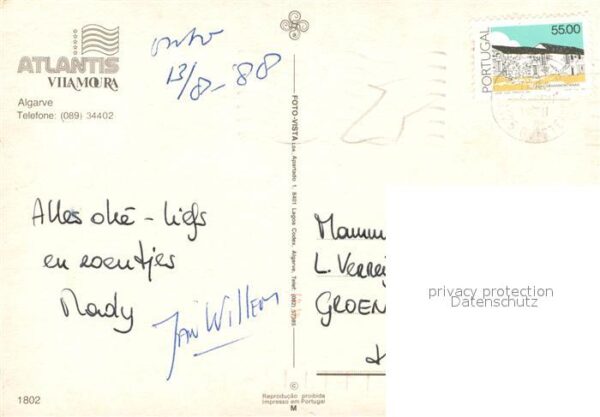 ATLANTIS
VILAMOURA
Algarve
Telefone: (089) 34402
13/8-'88
Alles oké - liefs
en zoentjes
Mady
Jan Willem
1802
FOTO-VISTA Lda. Apartado 1, 8401 Lagoa Codex, Algarve, Telef.
© 
Reprodução proibida
Impresso em Portugal
M
PORTUGAL
55.00
L. Verreij
GROEN
privacy protection
Datenschutz